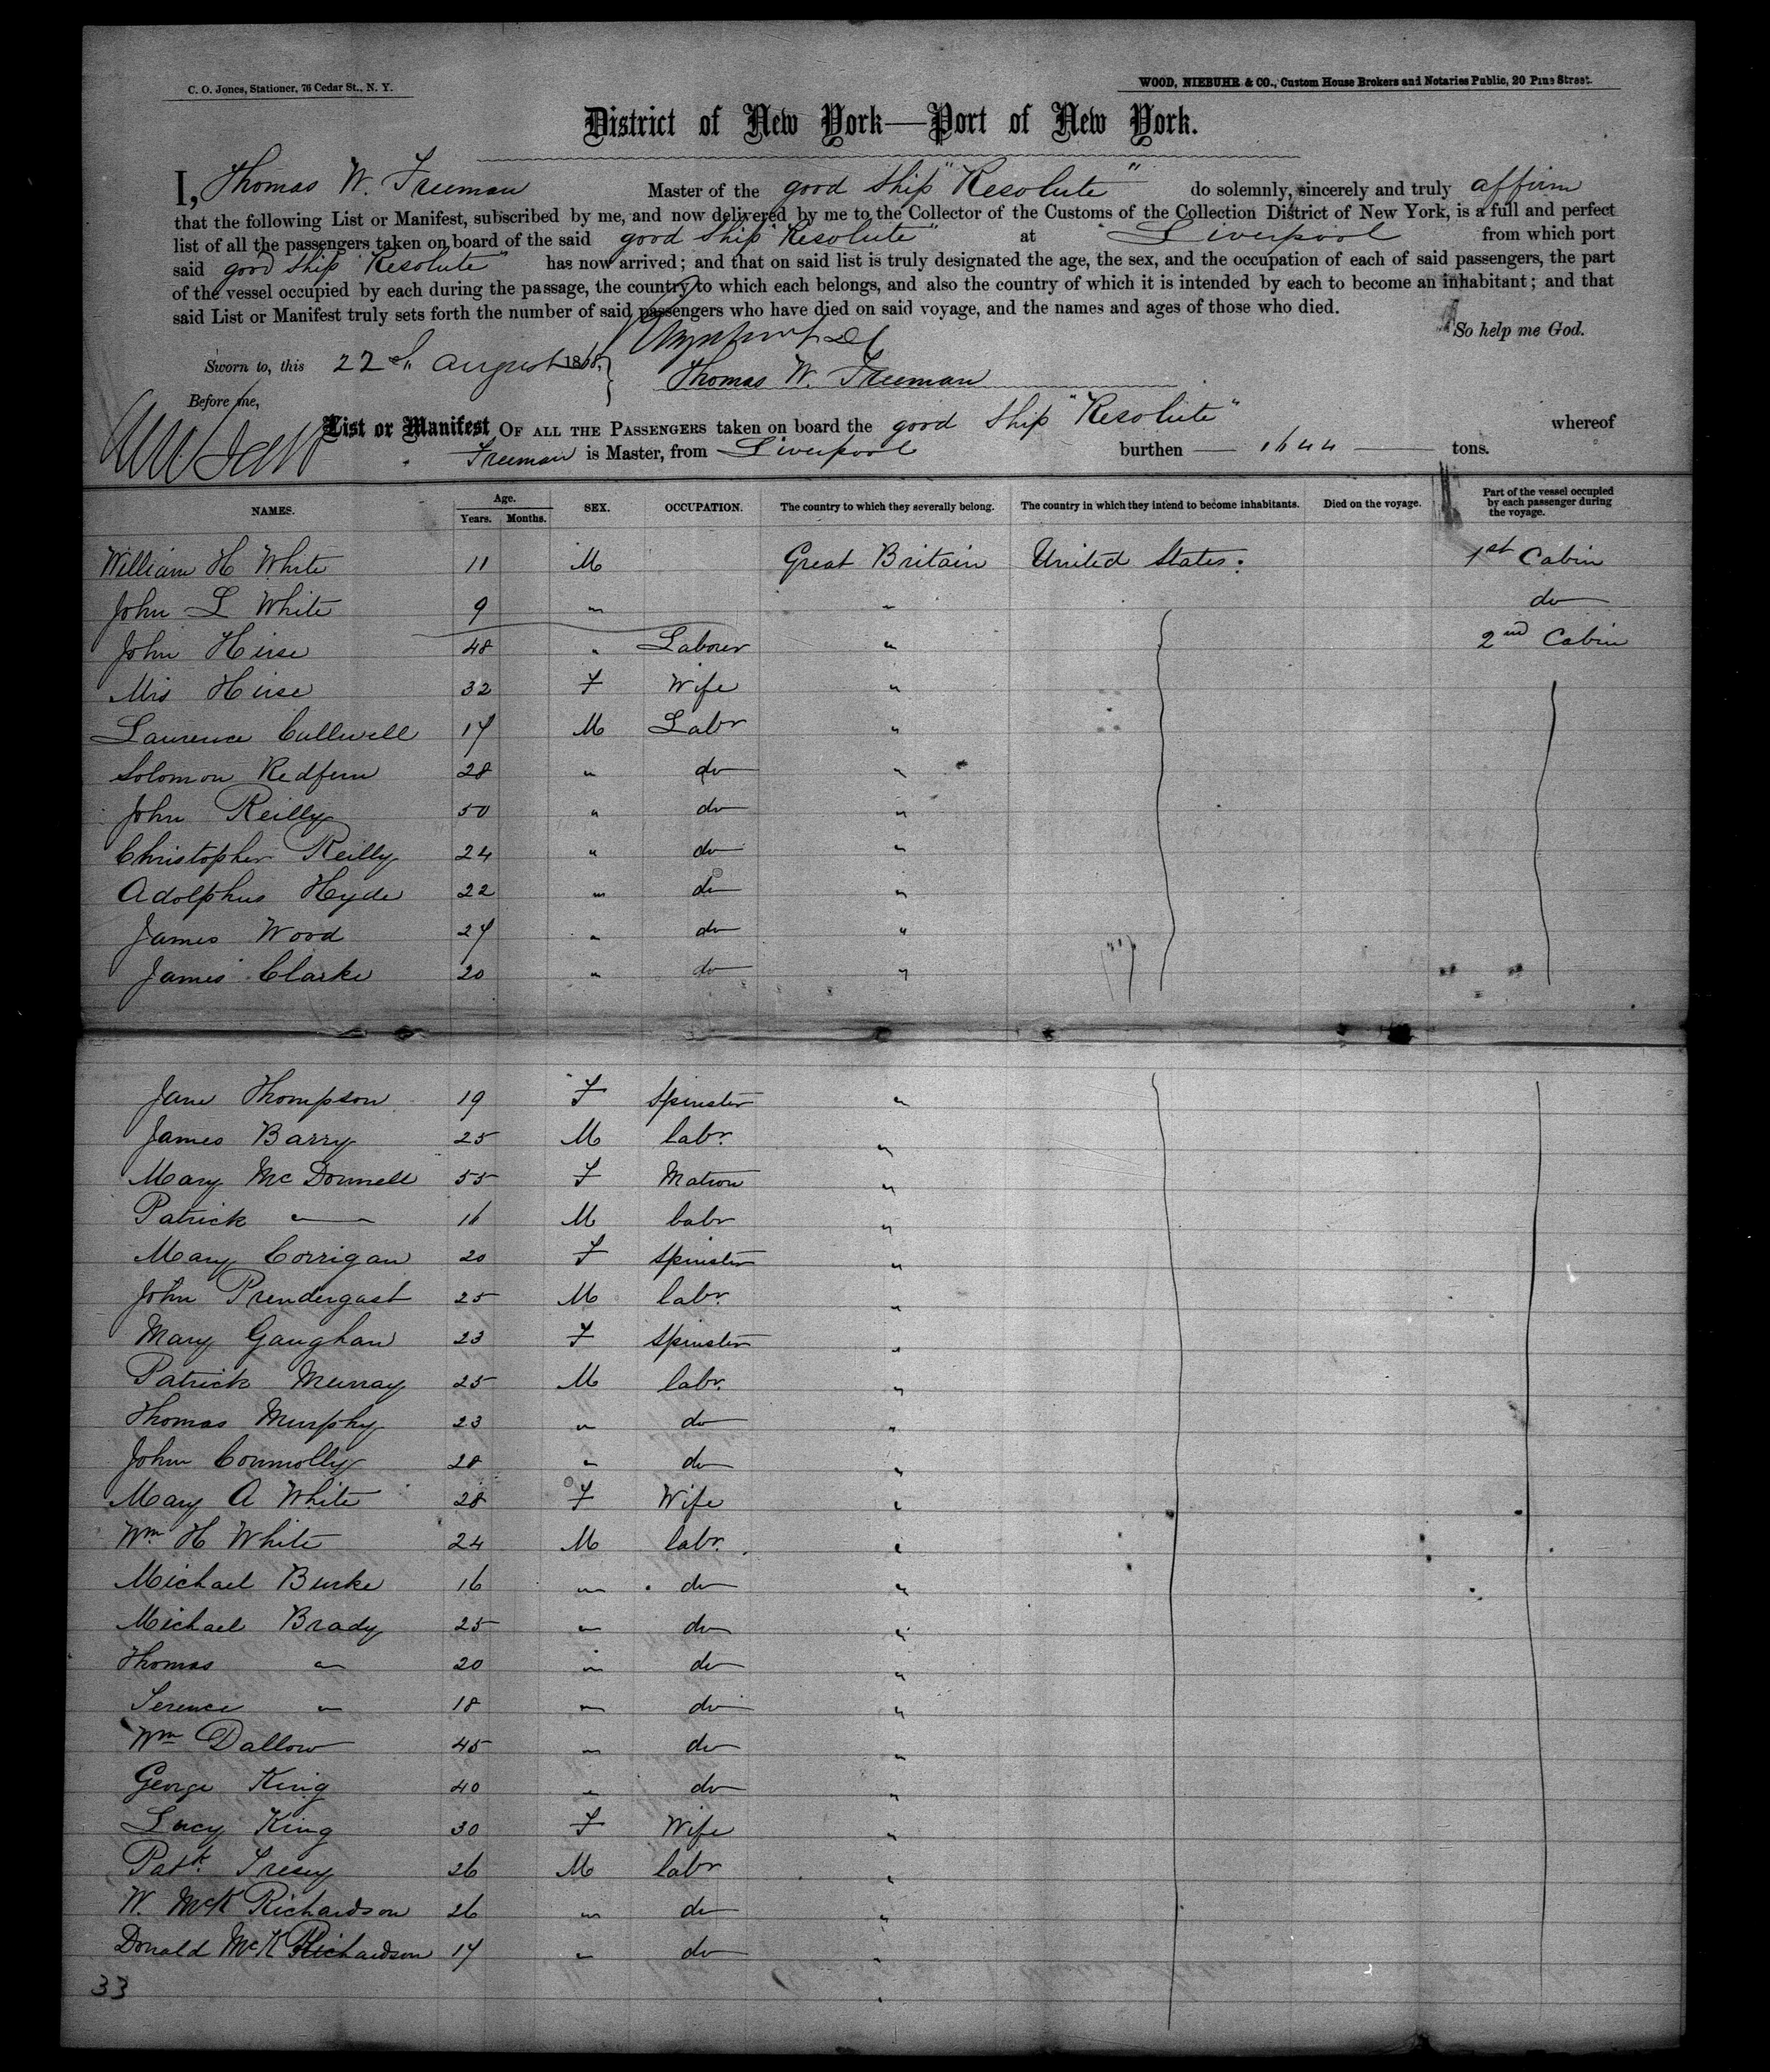 C. O. Jones, Stationer, 76 Cedar St., N. Y.
WOOD, NIEBUHR & CO., Custom House Brokers and Notaries Public, 20 Pine Street.
District of New York—Port of New York.
I, Thomas W. Freeman Master of the good Ship "Resolute" do solemnly, sincerely and truly affirm
that the following List or Manifest, subscribed by me, and now delivered by me to the Collector of the Customs of the Collection District of New York, is a full and perfect
list of all the passengers taken on board of the said good Ship "Resolute" at Liverpool from which port
said good Ship "Resolute" has now arrived; and that on said list is truly designated the age, the sex, and the occupation of each of said passengers, the part
of the vessel occupied by each during the passage, the country to which each belongs, and also the country of which it is intended by each to become an inhabitant; and that
said List or Manifest truly sets forth the number of said passengers who have died on said voyage, and the names and ages of those who died.
So help me God.
Sworn to, this 22d August 1868,
Thomas W. Freeman
Before me,
List or Manifest OF ALL THE PASSENGERS taken on board the good Ship "Resolute" whereof
Freeman is Master, from Liverpool burthen — 1644 — tons.
NAMES. Age. Years. Months. SEX. OCCUPATION. The country to which they severally belong. The country in which they intend to become inhabitants. Died on the voyage. Part of the vessel occupied by each passenger during the voyage.
William H White 11 M Great Britain United States. 1st Cabin
John L White 9 " " do
John Heise 48 " Labourer " 2nd Cabin
Mrs Heise 32 F Wife "
Laurence Cullwell 17 M Labr "
Solomon Redfern 28 " do "
John Reilly 50 " do "
Christopher Reilly 24 " do "
Adolphus Hyde 22 " do "
James Wood 27 " do "
James Clarke 20 " do "
Jane Thompson 19 F Spinster "
James Barry 25 M labr. "
Mary McDonnell 55 F Matron "
Patrick " 16 M labr "
Mary Corrigan 20 F Spinster "
John Prendergast 25 M labr. "
Mary Gaughan 23 F Spinster "
Patrick Murray 25 M labr. "
Thomas Murphy 23 " do "
John Connolly 28 " do "
Mary A White 28 F Wife "
Wm H White 24 M labr. "
Michael Burke 16 " do "
Michael Brady 25 " do "
Thomas " 20 " do "
Terence " 18 " do "
Wm Dallow 45 " do "
George King 40 " do "
Lucy King 30 F Wife "
Patk. Tresey 26 M labr "
W. McK Richardson 26 " do "
Donald McK Richardson 17 " do "
33